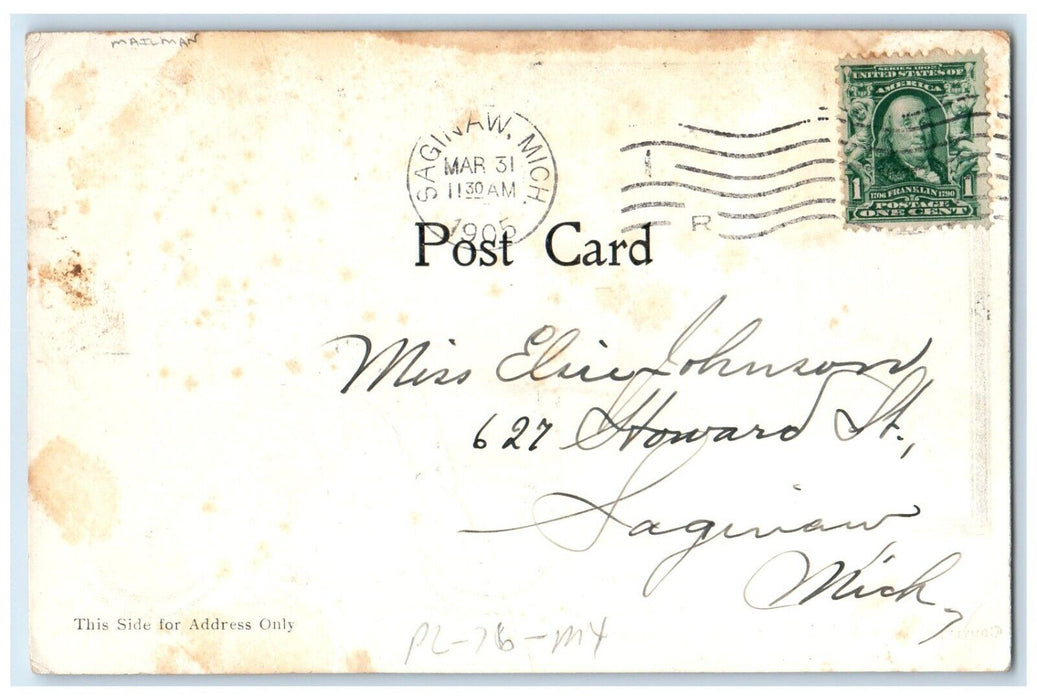 MAILMAN
SERIES 1902
UNITED STATES OF
AMERICA
1 1706 FRANKLIN 1790 1
POSTAGE
ONE CENT
SAGINAW, MICH.
MAR 31
11 30 AM
1905
R
Post Card
Miss Elsie Johnson
627 Howard St.,
Saginaw
Mich,
This Side for Address Only